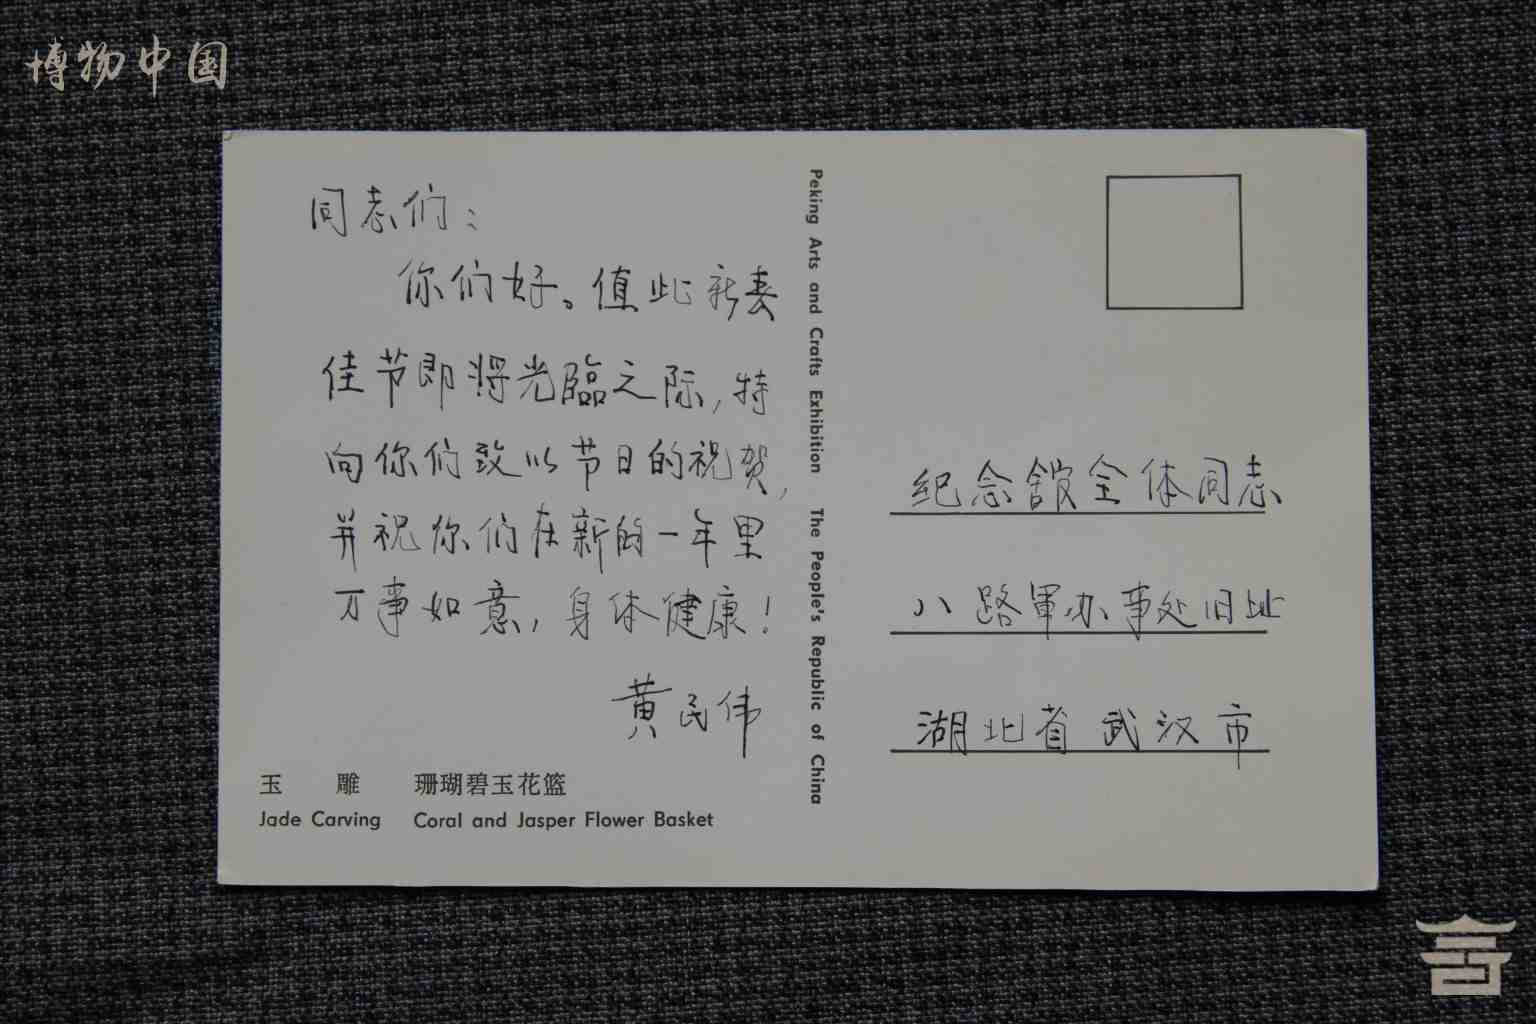 博物中国
同志们：
你们好。值此新春
佳节即将光臨之际，特
向你们致以节日的祝贺，
并祝你们在新的一年里
万事如意，身体健康！
黄民伟
玉 雕 珊瑚碧玉花篮
Jade Carving Coral and Jasper Flower Basket
Peking Arts and Crafts Exhibition The People's Republic of China
纪念舘全体同志
八路軍办事处旧址
湖北省武汉市